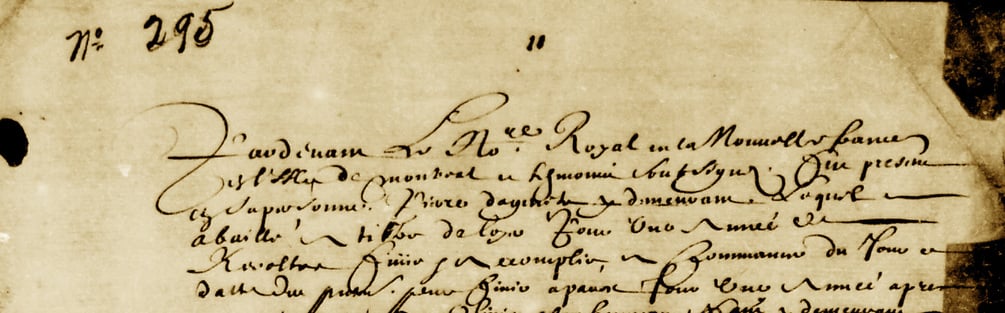 N.º 295
11
Pardevant Le No.re Royal en la Nouvelle france
et Isle de montreal et tesmoins soubsignez fut present
en sa personne Pierre y demeurant Lequel
a baillé a tiltre de loyer Pour Une Année et
Recoltes finie et accomplie a Commancer du Jour et
datte des pntes pour finir a pareil Jour Une Année apres
y demeurant